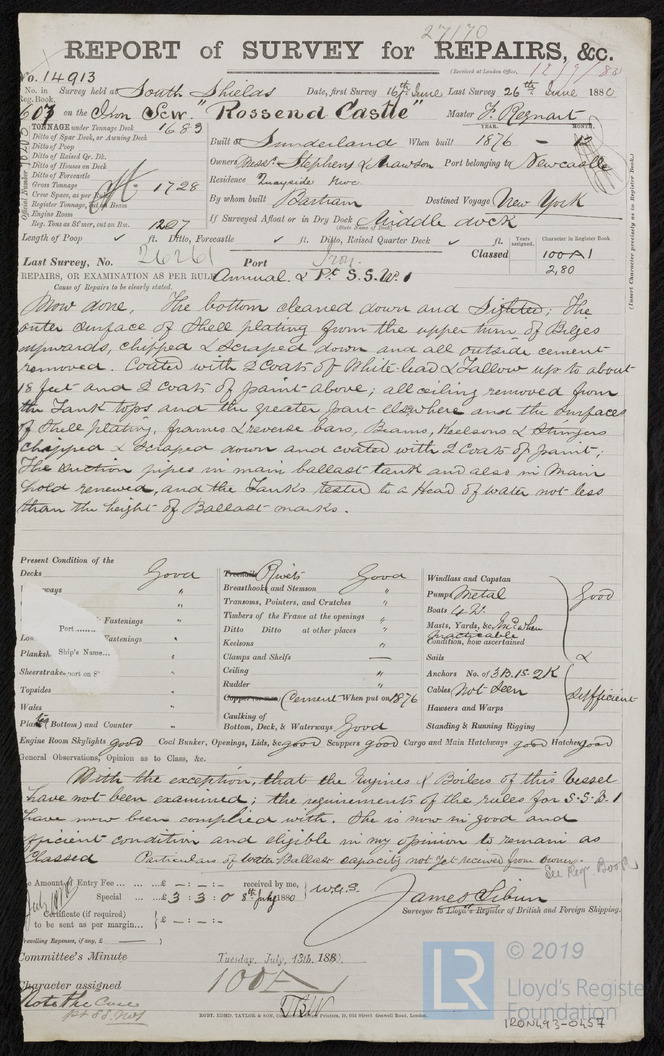 27170
REPORT of SURVEY for REPAIRS, &c.
(Received at London Office, 12/7/80
No. 14913
No. in Reg. Book. Survey held at South Shields Date, first Survey 16th June Last Survey 26th June 1880
607 on the Iron Scw. "Rossend Castle" Master F. Regnart
TONNAGE under Tonnage Deck 1683
Ditto of Spar Deck, or Awning Deck
Ditto of Poop
Ditto of Raised Qr. Dk.
Ditto of Houses on Deck
Ditto of Forecastle
Gross Tonnage 1728
Crew Space, as per
Register Tonnage, cut on Beam
Engine Room
Reg. Tons as St'mer, cut on Bm. 1207
YEAR. MONTH.
Built at Sunderland When built 1876 - 12
Owners Messrs. Stephens & Mawson Port belonging to Newcastle
Residence Quayside Nwc.
By whom built Bartram Destined Voyage New York
If Surveyed Afloat or in Dry Dock Middle dock
(State Name of Dock)
Length of Poop ✓ ft. Ditto, Forecastle ✓ ft. Ditto, Raised Quarter Deck ✓ ft.
Years assigned. Character in Register Book.
Last Survey, No. 26261 Port Iron Classed 100A1
2,80
(Insert Character precisely as in Register Book.)
REPAIRS, OR EXAMINATION AS PER RULE Annual & Pt. S.S. No 1
Cause of Repairs to be clearly stated.
Now done, The bottom cleaned down and Sighted; The
outer surface of Shell plating from the upper turn of Bilges
upwards, chipped & scraped down and all outside cement
removed. Coated with 2 coats of White lead & Tallow up to about
18 feet and 2 coats of paint above; all ceiling removed from
the Tank tops and the greater part elsewhere and the surfaces
of Shell plating, frames & reverse bars, Beams, Keelsons & Stringers
chipped & scraped down and coated with 2 Coats of paint;
The suction pipes in main ballast tank and also in Main
hold renewed, and the Tanks tested to a Head of water not less
than the height of Ballast marks.
Present Condition of the
Decks Good
Fastenings "
Fastenings "
Planksh
Sheerstrakes
Topsides "
Wales "
Plates (Bottom) and Counter "
Port .......
Ship's Name...
Treenails Rivets Good
Breasthooks and Stemson "
Transoms, Pointers, and Crutches "
Timbers of the Frame at the openings "
Ditto Ditto at other places "
Keelsons "
Clamps and Shelfs —
Ceiling "
Rudder "
Cement When put on 1876
Caulking of
Bottom, Deck, & Waterways Good
Windlass and Capstan
Pumps Metal
Boats
Masts, Yards, &c.
practicable
Condition, how ascertained
Good
Sails
&
Anchors No. of 3 B. 1 S. 2 K
Cables Not Seen
Hawsers and Warps
Standing & Running Rigging
Sufficient
Engine Room Skylights good Coal Bunker, Openings, Lids, &c. good Scuppers good Cargo and Main Hatchways good Hatches good
General Observations, Opinion as to Class, &c.
With the exception, that the Engines & Boilers of this Vessel
have not been examined; the requirements of the rules for S.S. No 1
have now been complied with. She is now in good and
efficient condition and eligible in my opinion to remain as
Classed Particulars of Water Ballast capacity not yet received from owners.
See Reg Book
Amount of Entry Fee ... ... £ — : — : — received by me,
Special ... ... £ 3 : 3 : 0 8th July 1880
Certificate (if required) £ — : — : —
to be sent as per margin...
Travelling Expenses, if any, £ —
James Sibun
Surveyor to Lloyd's Register of British and Foreign Shipping.
Committee's Minute Tuesday, July, 13th, 1880.
Character assigned 100A1
Note the Case
pt SS No 1
© 2019
LR Lloyd's Register
Foundation
IRON493-0457